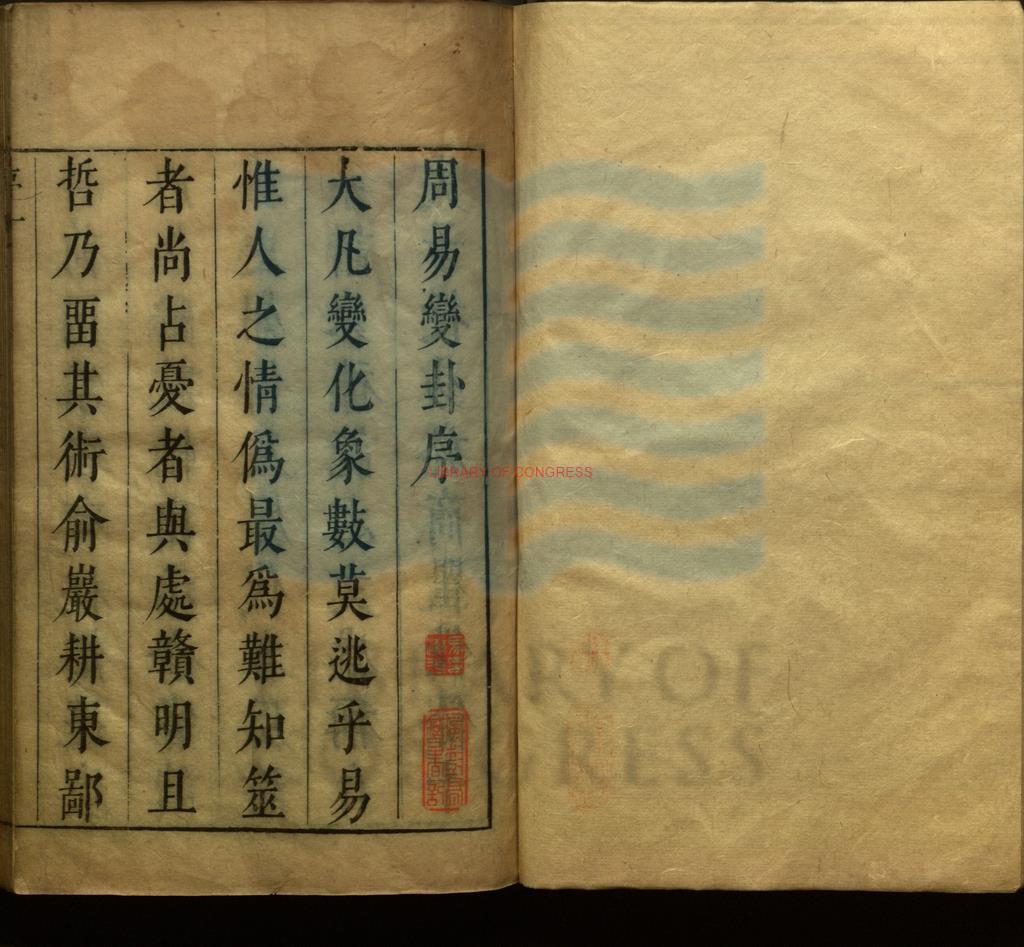 周易變卦序
大凡變化象數莫逃乎易
惟人之情僞最爲難知筮
者尚占憂者與處贛明且
哲乃畱其術俞巖耕東鄙
LIBRARY OF CONGRESS